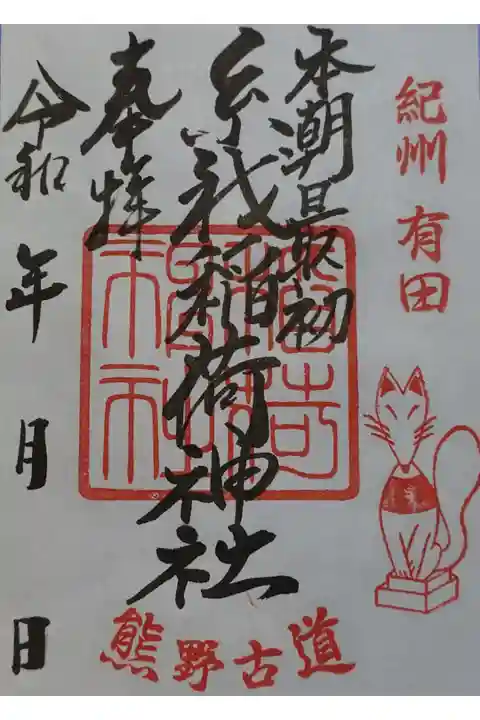 紀州 有田
本潮最初
糸我稲荷神社
奉拝
令和 年 月 日
熊野古道